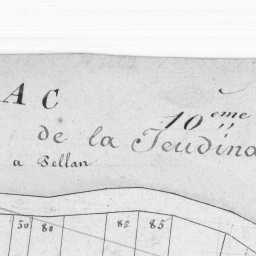 A C
10 eme
de la Teudina
a Bellan
50 80 82 85